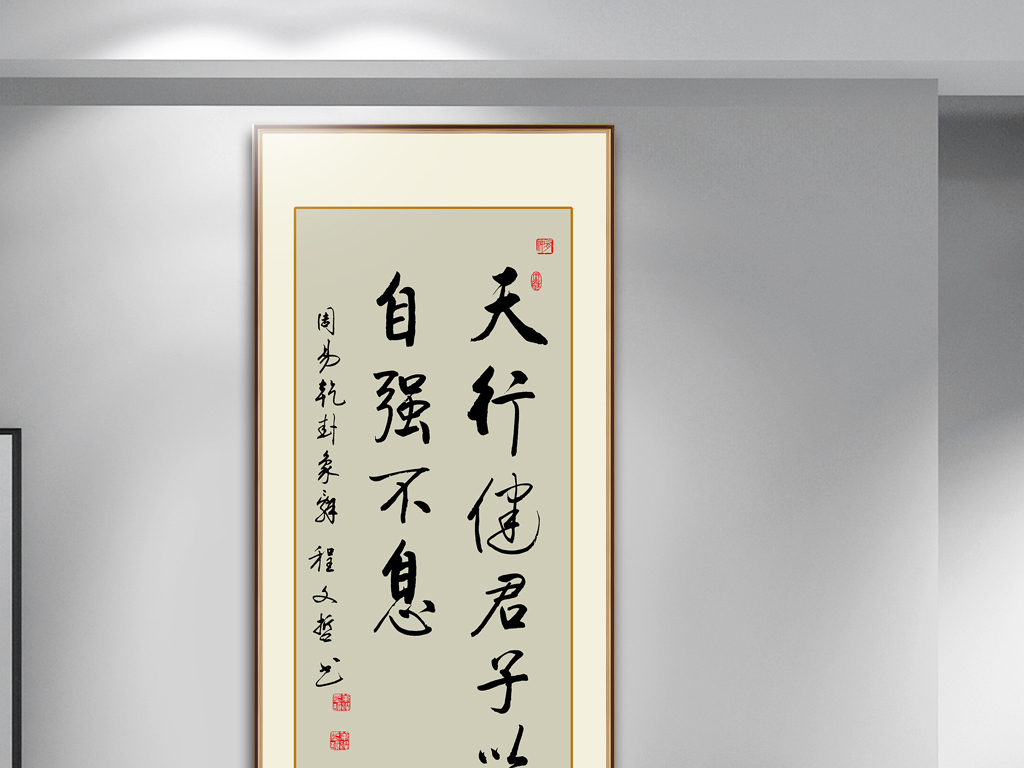 天行健君子以
自强不息
周易乾卦象辞 程文哲书